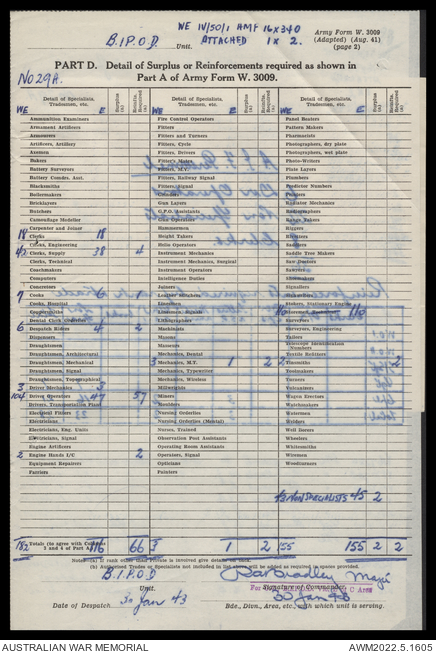 WE IV/50/1 AMF 16x340
ATTACHED 1 x 2.
Army Form W. 3009
(Adapted) (Aug. 41)
(page 2)
B.I.P.O.D. Unit.
PART D. Detail of Surplus or Reinforcements required as shown in
Part A of Army Form W. 3009.
No 29A.
Detail of Specialists, Tradesmen, etc.
Surplus (a)
Reinfts. Required (a)
Detail of Specialists, Tradesmen, etc.
Surplus (a)
Reinfts. Required (a)
Detail of Specialists, Tradesmen, etc.
Surplus (a)
Reinfts. Required (a)
WE E WE E WE E
Ammunition Examiners
Armament Artificers
Armourers
Artificers
Axemen
Bakers
Battery Surveyors
Battery Comdrs. Asst.
Blacksmiths
Boilermakers
Bricklayers
Butchers
Camouflage Modeller
18 Carpenter and Joiner 18
Clerks
Clerks, Engineering
42 Clerks, Supply 38 4
Clerks, Technical
Coachmakers
Computers
Concretors
7 Cooks 6 1
Cooks, Hospital
Coppersmiths
Dental Clerk Orderlies
6 Despatch Riders 4 2
Dispensers
Draughtsmen
Draughtsmen, Architectural
Draughtsmen, Mechanical
Draughtsmen, Signal
Draughtsmen, Topographical
3 Driver Mechanics 3
104 Driver Operators 47 57
Drivers, Transportation Plant
Electrical Fitters
Electricians
Electricians, Eng. Units
Electricians, Signal
Engine Artificers
2 Engine Hands I/C 2
Equipment Repairers
Farriers
Fire Control Operators
Fitters
Fitters and Turners
Fitters, Cycle
Fitters, Drivers
Fitter's Mates
Fitters, M.V.
Fitters, Railway Signal
Fitters, Signal
Grinders
Gun Layers
G.P.O. Assistants
Gun Operators
Hammermen
Height Takers
Helio Operators
Instrument Mechanics
Instrument Mechanics, Signal
Instrument Mechanics, Surgical
Intelligence Duties
Joiners
Leather Stitchers
Linesmen
Linesmen, Signals
Lithographers
Machinists
Masons
Mechanics
Mechanics, Dental
3 Mechanics, M.T. 1 2
Mechanics, Typewriter
Mechanics, Wireless
Millwrights
Miners
Moulders
Nursing Orderlies
Nursing Orderlies (Mental)
Nurses, Trained
Observation Post Assistants
Operating Room Assistants
Operators, Signal
Opticians
Painters
Panel Beaters
Pattern Makers
Pharmacists
Photographers, dry plate
Photographers, wet plate
Photo-Writers
Plate Layers
Plumbers
Predictor Numbers
Radiator Mechanics
Radiographers
Range Takers
Riggers
Riveters
Saddlers
Saddle Tree Makers
Saw Doctors
Sawyers
Shoemakers
Signallers
Stokers, Stationary Engine
110
Surveyors
Surveyors, Engineering
Tailors
Telescope Identification Numbers
Textile Refitters
Tinsmiths 2
Toolmakers
Turners
Vulcanizers
Wagon Erectors
Watchmakers
Watermen
Welders
Well Borers
Wheelers
Whitesmiths
Wiremen
Woodturners
NON SPECIALISTS 45 2
182 Totals (to agree with Columns 3 and 4 of Part A) 116 66 3 1 2 155 155 2 2
Note:—(a) If rank other than Private is involved give details on back.
(b) Authorised Trades or Specialists not included in list above will be added as required in spaces provided.
B.I.P.O.D Unit.
Bradley Major
Signature of Commander,
30 Jan 43
Date of Despatch 30 Jan 43
Bde., Divn., Area, etc., with which unit is serving.
AUSTRALIAN WAR MEMORIAL
AWM2022.5.1605